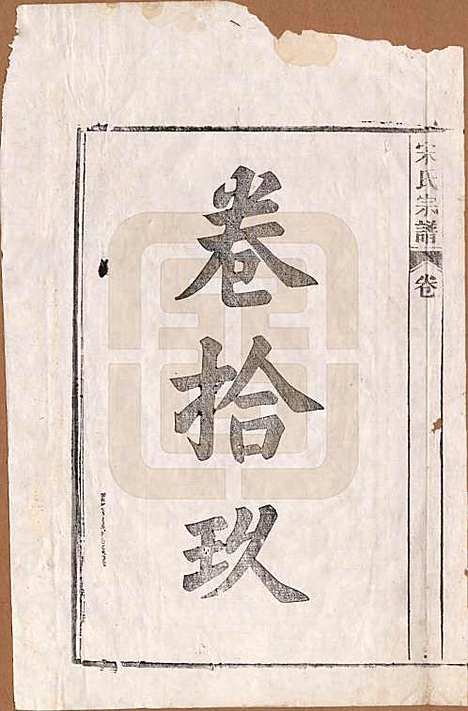 宋氏宗譜
卷
卷拾玖